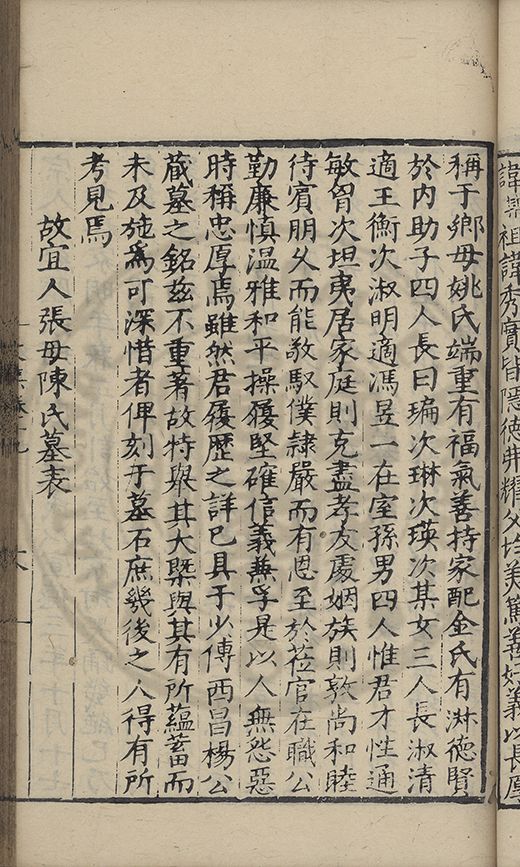 諱榮祖諱秀實皆隱德弗耀父均美篤善好義以長厚
稱于鄉母姚氏端重有福氣善持家配金氏有淋德賢
於內助子四人長曰㻞次琳次瑛次某女三人長淑清
適王衡次淑明適馮昱一在室孫男四人惟君才性通
敏曾次坦夷居家庭則克盡孝友處姻族則敦尚和睦
待賓朋父而能敬馭僕隷嚴而有恩至於蒞官在職公
勤廉慎温雅和平操履堅確信義兼孚是以人無怨惡
時稱忠厚焉雖然君履歷之詳已具于少傅西昌楊公
蔵墓之銘兹不重著故特舉其大槩與其有所蘊蓄而
未及施為可深惜者俾刻于墓石庶幾後之人得有所
考見焉
故宜人張母陳氏墓表